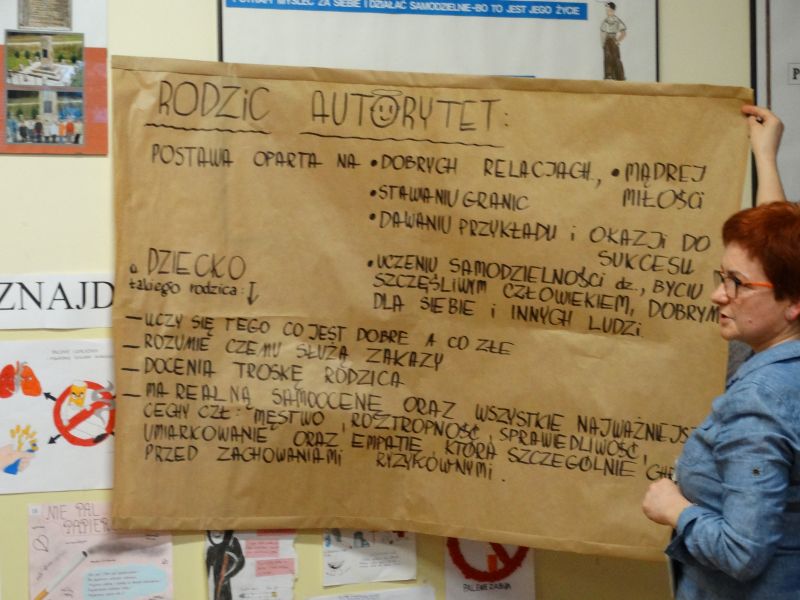 POTRAFI MYŚLEĆ ZA SIEBIE I DZIAŁAĆ SAMODZIELNIE-BO TO JEST JEGO ŻYCIE
RODZIC AUTORYTET:
POSTAWA OPARTA NA • DOBRYCH RELACJACH, • MĄDREJ MIŁOŚCI
• STAWANIU GRANIC
• DAWANIU PRZYKŁADU i OKAZJI DO SUKCESU
• UCZENIU SAMODZIELNOŚCI dz., BYCIU
SZCZĘŚLIWYM CZŁOWIEKIEM, DOBRYM
DLA SIEBIE i INNYCH LUDZI.
a DZIECKO
takiego rodzica: ↓
— UCZY SIĘ TEGO CO JEST DOBRE A CO ZŁE
— ROZUMIE CZEMU SŁUŻĄ ZAKAZY
— DOCENIA TROSKĘ RODZICA
— MA REALNĄ SAMOOCENĘ ORAZ WSZYSTKIE NAJWAŻNIEJSZ
CECHY CZŁ: MĘSTWO, ROZTROPNOŚĆ, SPRAWIEDLIWOŚĆ,
UMIARKOWANIE ORAZ EMPATIĘ, KTÓRA SZCZEGÓLNIE
PRZED ZACHOWANIAMI RYZYKOWNYMI.
ZNAJD
NIE PAL
PAPIER
PALENIE ZABIJA